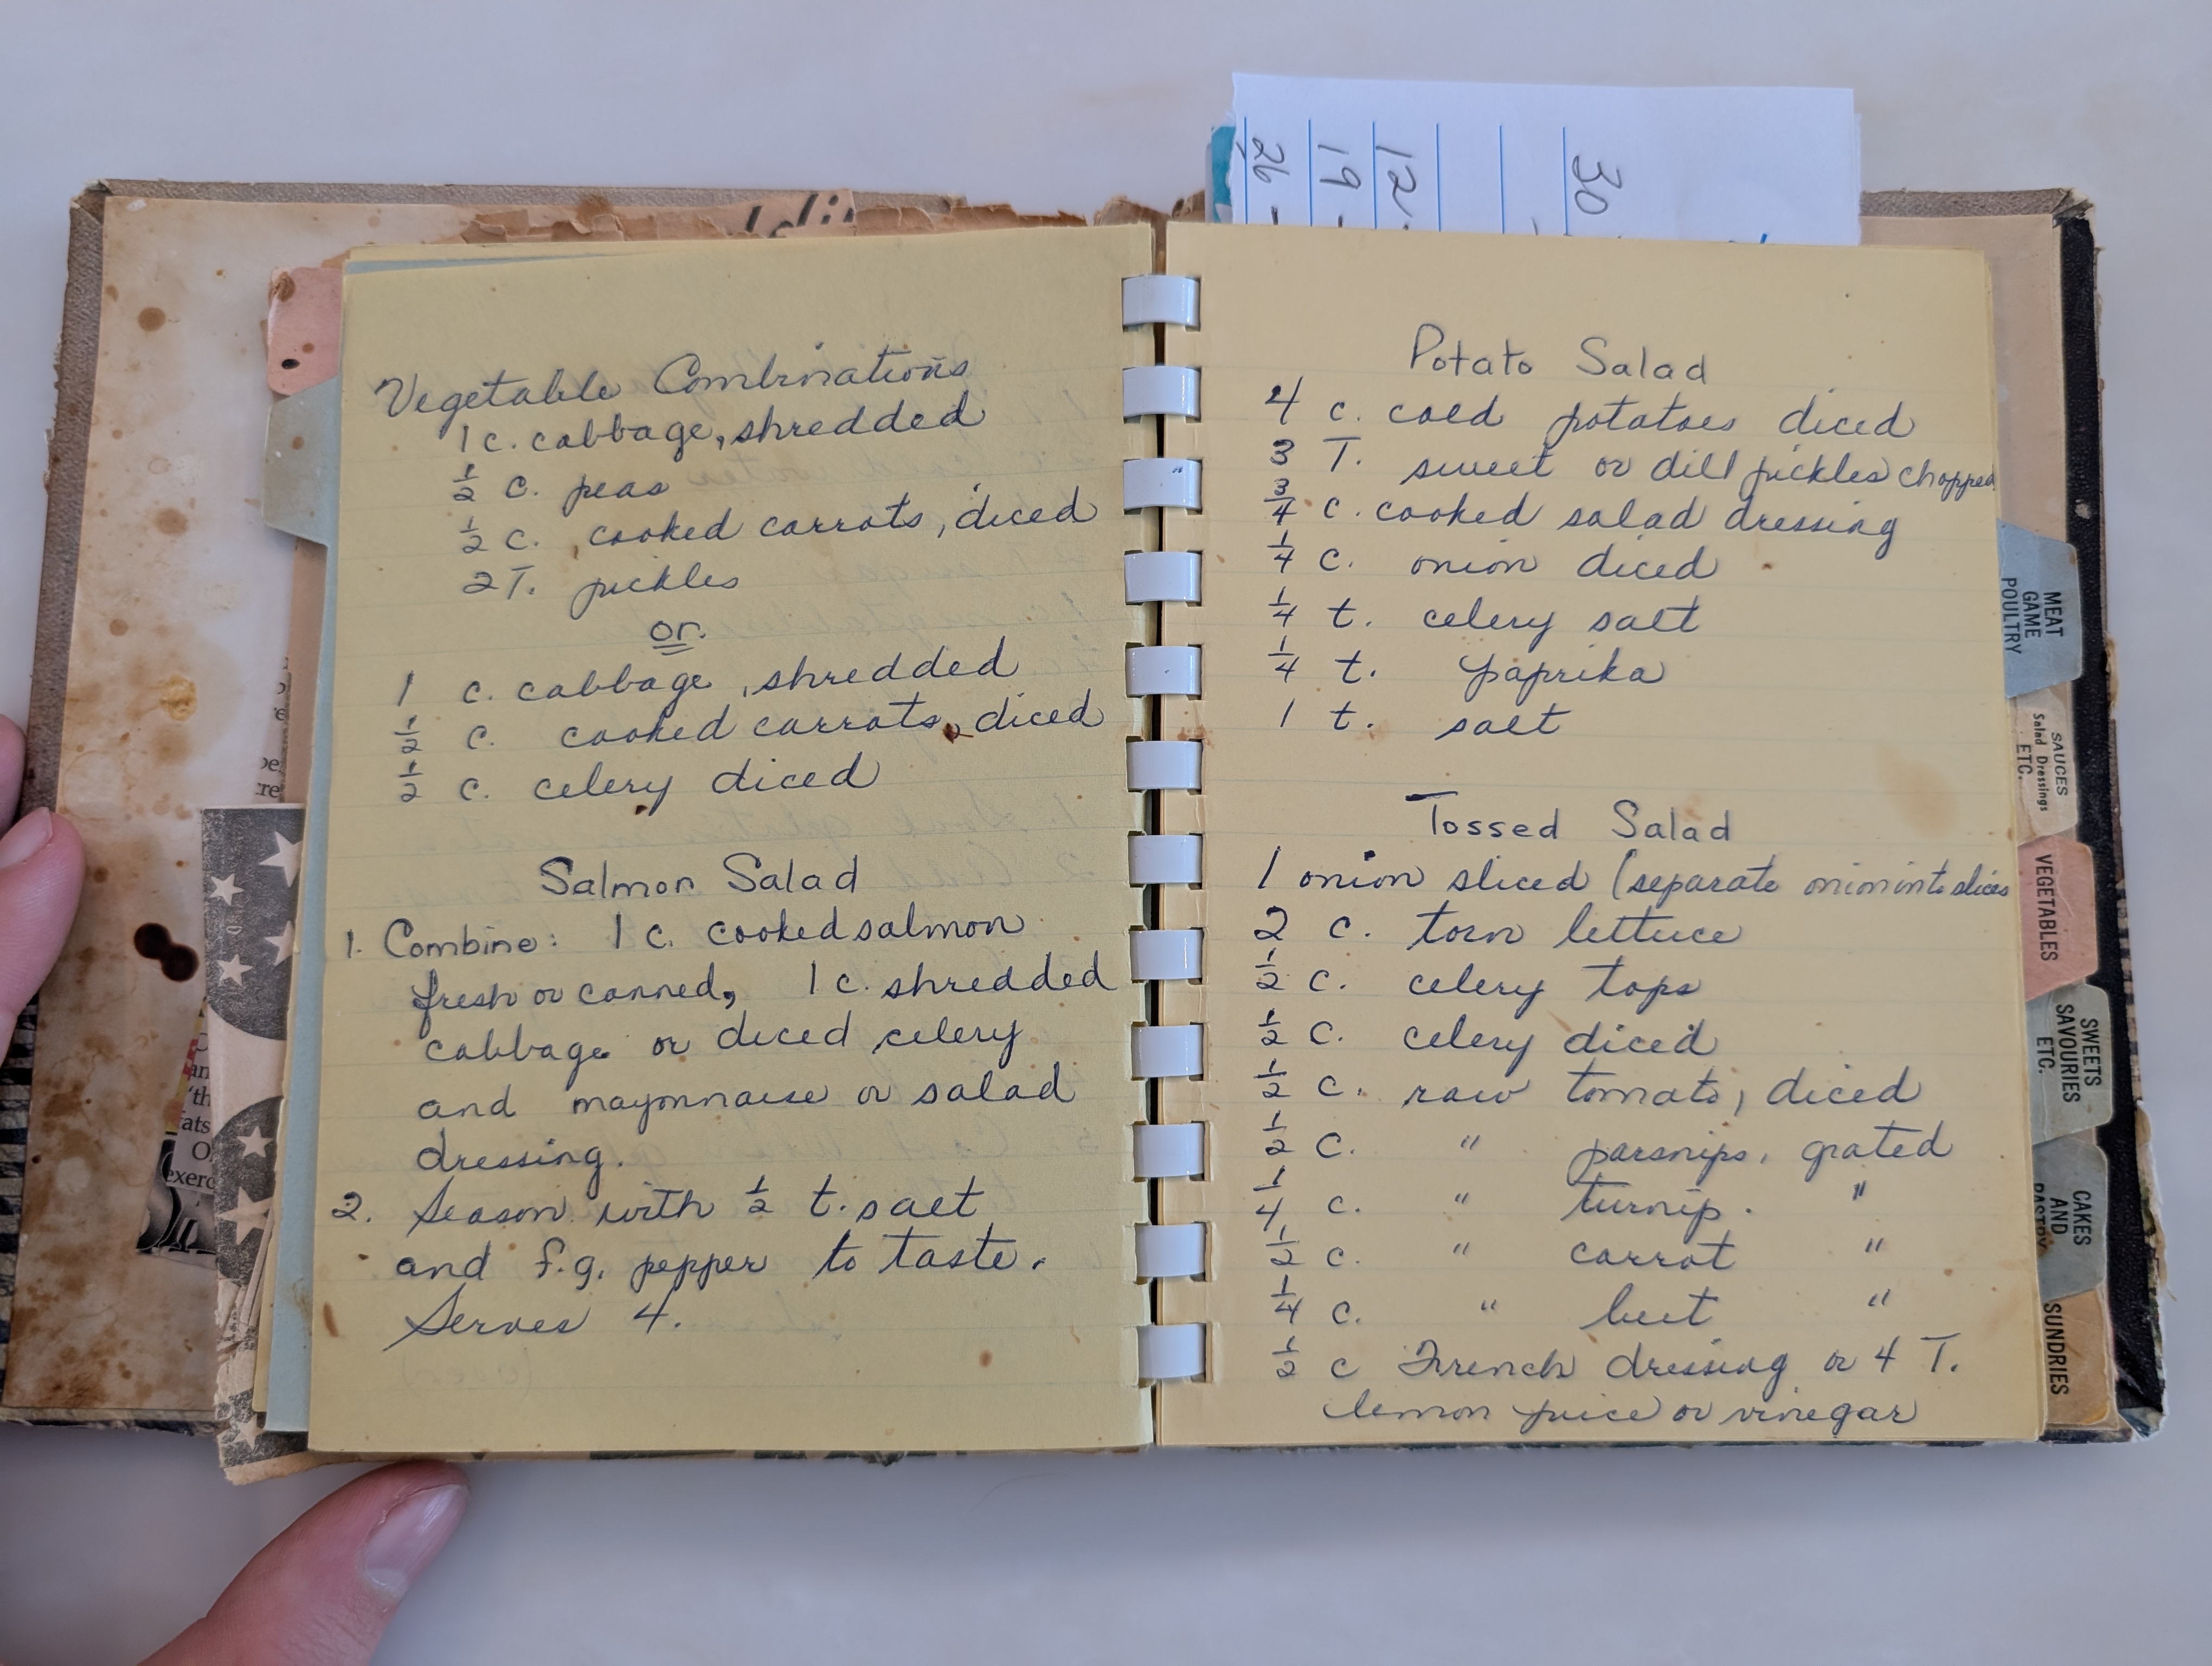 26 -
19 -
12 -
30
Vegetable Combinations
1 c. cabbage, shredded
½ c. peas
½ c. cooked carrots, diced
2 T. pickles
or
1 c. cabbage, shredded
½ c. cooked carrots, diced
½ c. celery diced
Salmon Salad
1. Combine: 1 c. cooked salmon
fresh or canned, 1 c. shredded
cabbage or diced celery
and mayonnaise or salad
dressing.
2. Season with ½ t. salt
and f.g. pepper to taste.
Serves 4.
Potato Salad
4 c. cold potatoes diced
3 T. sweet or dill pickles chopped
¾ c. cooked salad dressing
¼ c. onion diced
¼ t. celery salt
¼ t. paprika
1 t. salt
Tossed Salad
1 onion sliced (separate onion into slices
2 c. torn lettuce
½ c. celery tops
½ c. celery diced
½ c. raw tomato, diced
½ c. " parsnips, grated
¼ c. " turnip. "
½ c. " carrot "
¼ c. " beet "
½ c French dressing or 4 T.
lemon juice or vinegar
MEAT
GAME
POULTRY
SAUCES
Salad Dressings
ETC.
VEGETABLES
SWEETS
SAVOURIES
ETC.
CAKES
AND
PASTRY
SUNDRIES